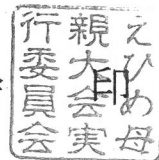 えひめ母
親大会実
行委員会
印